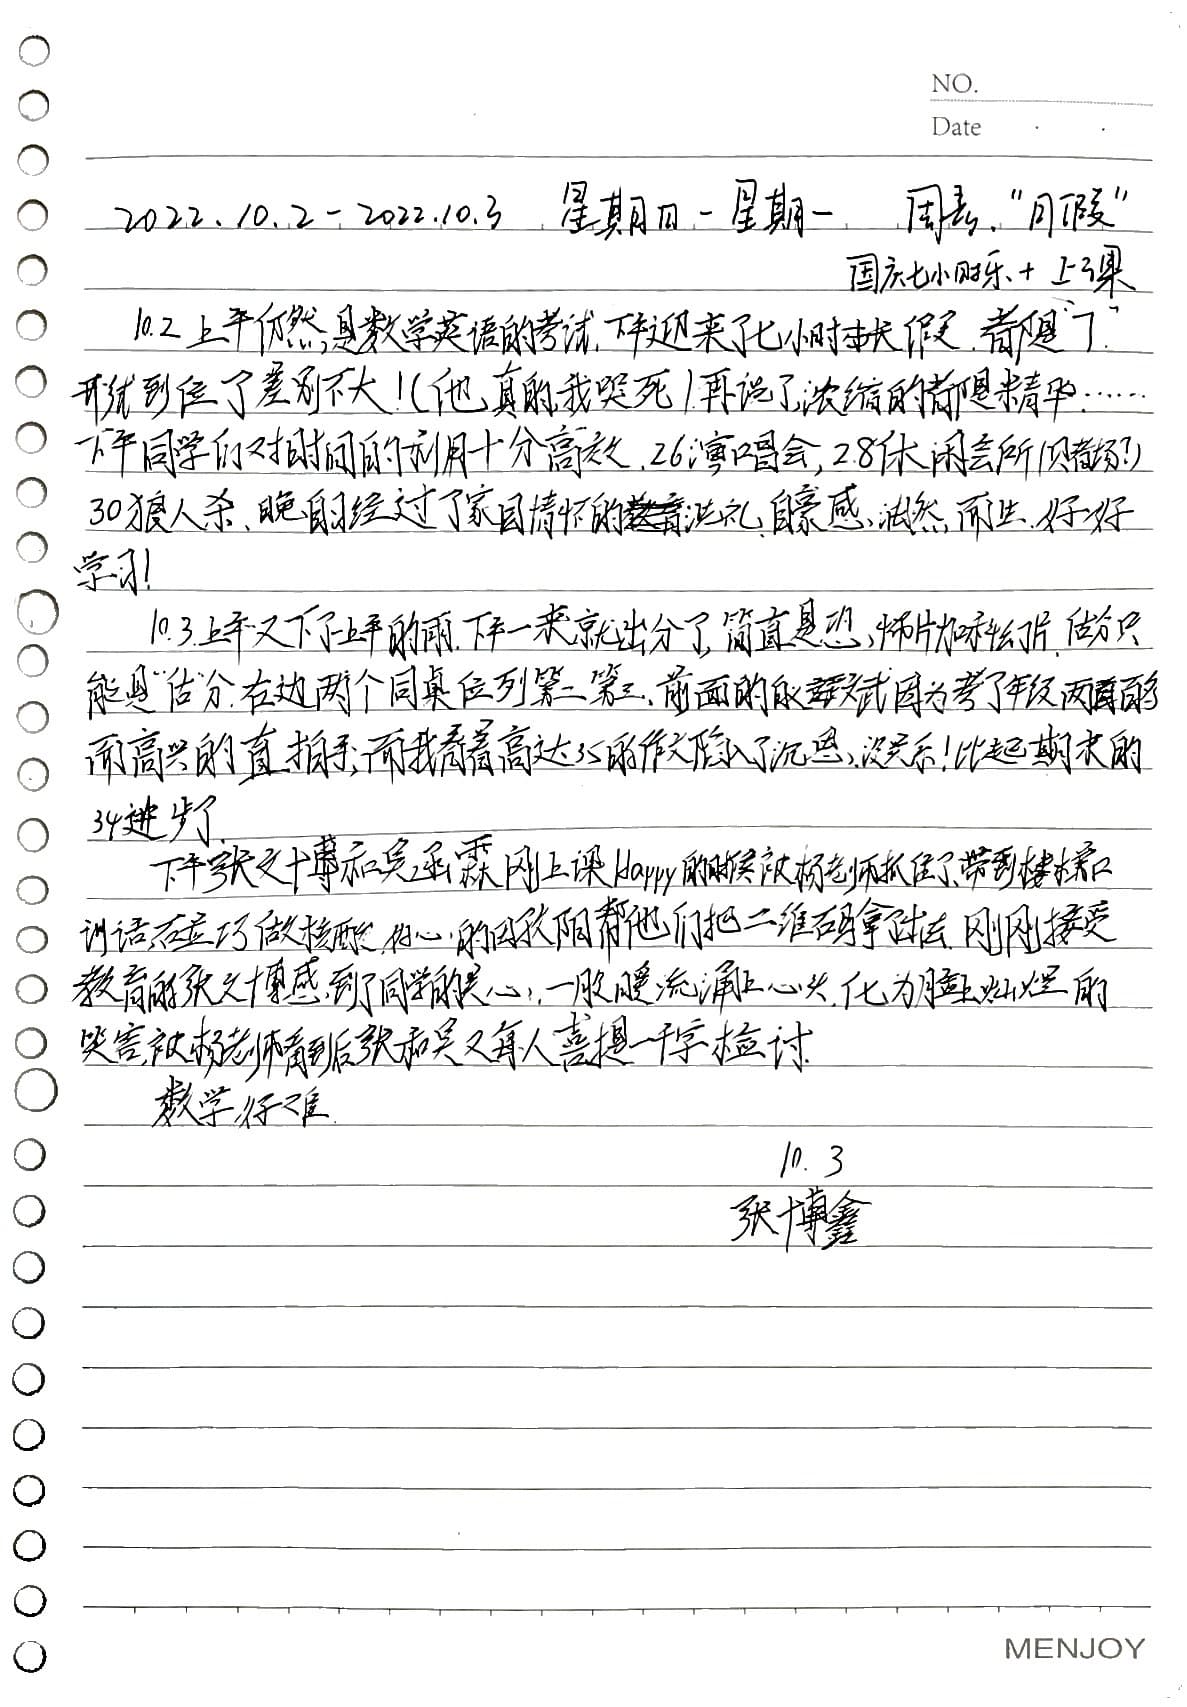 NO.
Date
2022.10.2-2022.10.3 星期日-星期一 周嘉."月假"
国庆七小时乐+上课
10.2上午仍然是数学英语的考试,下午迎来了七小时长假.都是"7".
形式到位了差别不大!(他真的我哭死)再说了浓缩的都是精华……
下午同学们对时间的利用十分高效.26演唱会,28休闲会所(赌场?)
30狼人杀.晚自习经过了家国情怀的洗礼.自豪感油然而生.好好
学习!
10.3上午又下了一上午的雨.下午一来就出分了,简直是恐怖片加科幻片.估分只
能是"估"分.右边两个同桌位列第二第三.前面的 文武因为考了年级两百多
而高兴的直拍手,而我看着高达35的作文陷入了沉思,没关系!比起期末的
34进步了.
下午张文博和吴函霖刚上课Happy的时候被杨老师抓住了,带到楼梯口
训话,碰巧做核酸.好心的 秋阳帮他们把二维码拿了出去.刚刚接受
教育的张文博感到了同学的关心,一股暖流涌上心头.化为脸上灿烂的
笑容,被杨老师看到后张和吴又每人喜提一千字检讨.
数学好难.
10.3
张博鑫
MENJOY